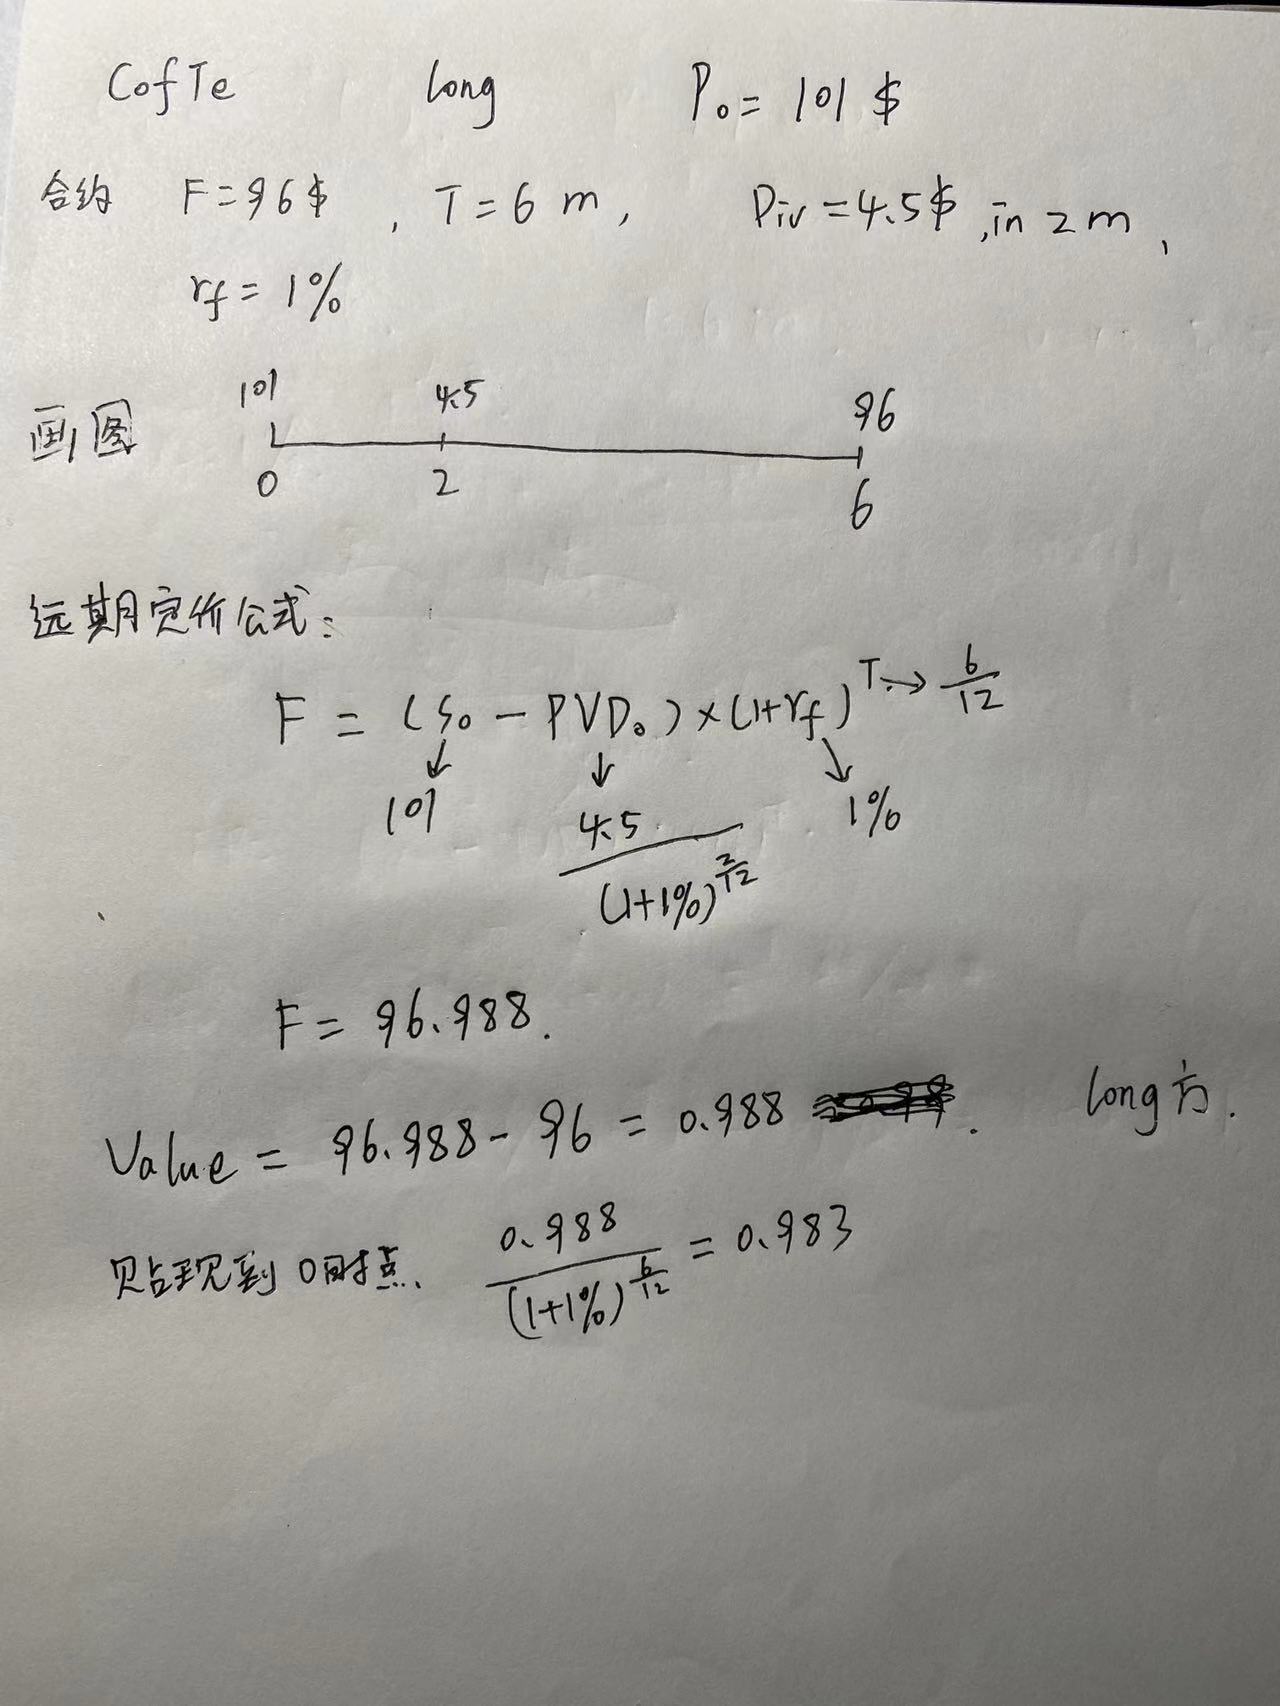 CofTe long P₀= 101 $
合约 F=96$ , T=6 m, Div=4.5$ ,in 2m,
rf= 1%
101 4.5 96
画图
0 2 6
远期定价公式:
F = (S₀ - PVD₀)×(1+rf)^T → 6/12
↓ ↓ ↘
101 4.5/(1+1%)^(2/12) 1%
F= 96.988.
Value = 96.988- 96 = 0.988 . long方.
贴现到0时点、 0.988/(1+1%)^(6/12) = 0.983